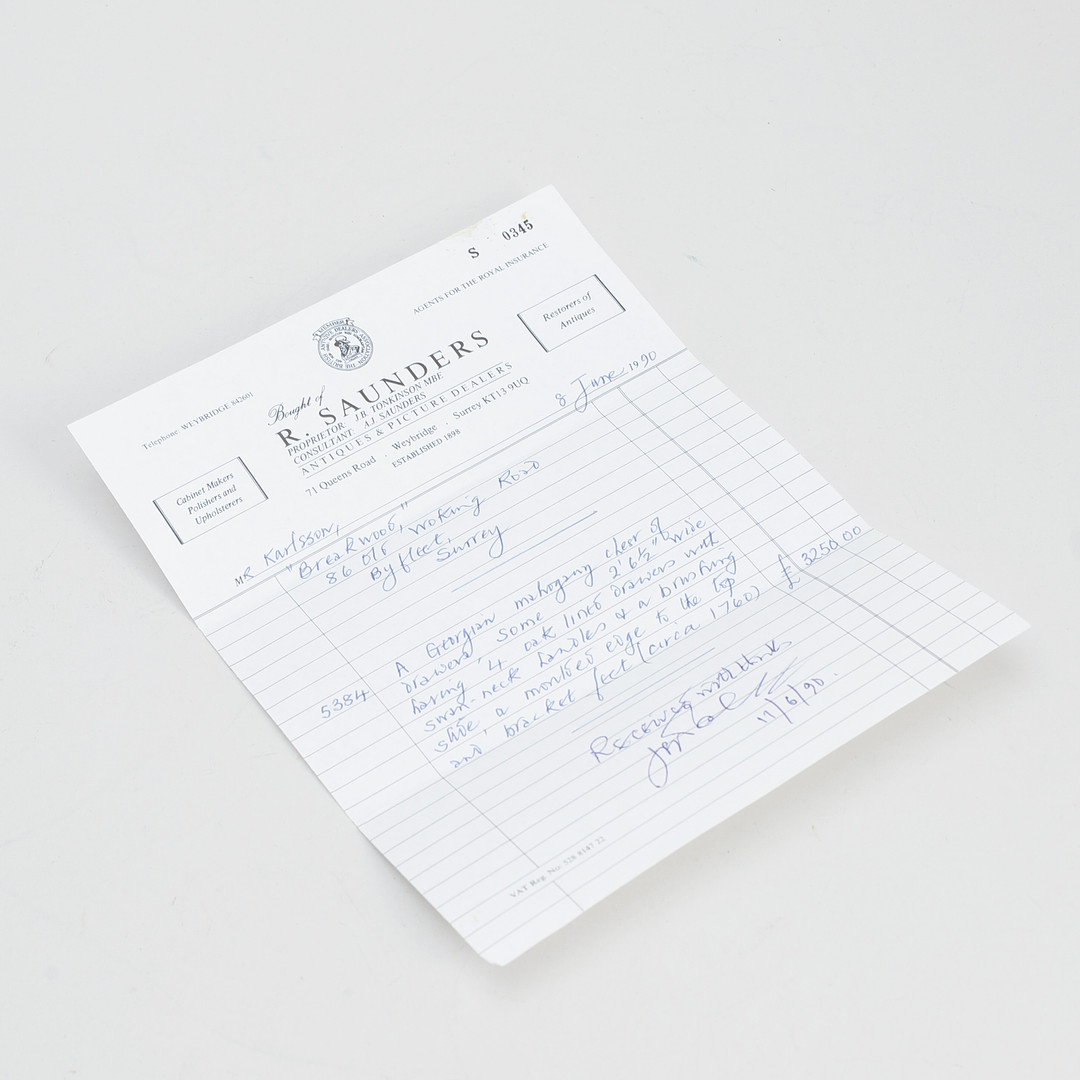 S 0345
AGENTS FOR THE ROYAL INSURANCE
MEMBER
THE BRITISH ANTIQUE DEALERS ASSOCIATION
Restorers of
Antiques
Telephone: WEYBRIDGE 842601
Bought of
R. SAUNDERS
PROPRIETOR: J.B. TONKINSON MBE
CONSULTANT: A.J. SAUNDERS
ANTIQUES & PICTURE DEALERS
71 Queens Road · Weybridge · Surrey KT13 9UQ
ESTABLISHED 1898
Cabinet Makers
Polishers and
Upholsterers
8 June 1990
MR Karlsson,
"Breakwood,"
86 Old Woking Road
Byfleet,
Surrey
A Georgian mahogany chest of
drawers, some 2'6½" wide
having 4 oak lined drawers with
swan-neck handles & a brushing
slide, a moulded edge to the top
and bracket feet (circa 1760)
5384
£ 3250.00
Received with thanks
11/6/90.
VAT Reg No: 528 8387 22